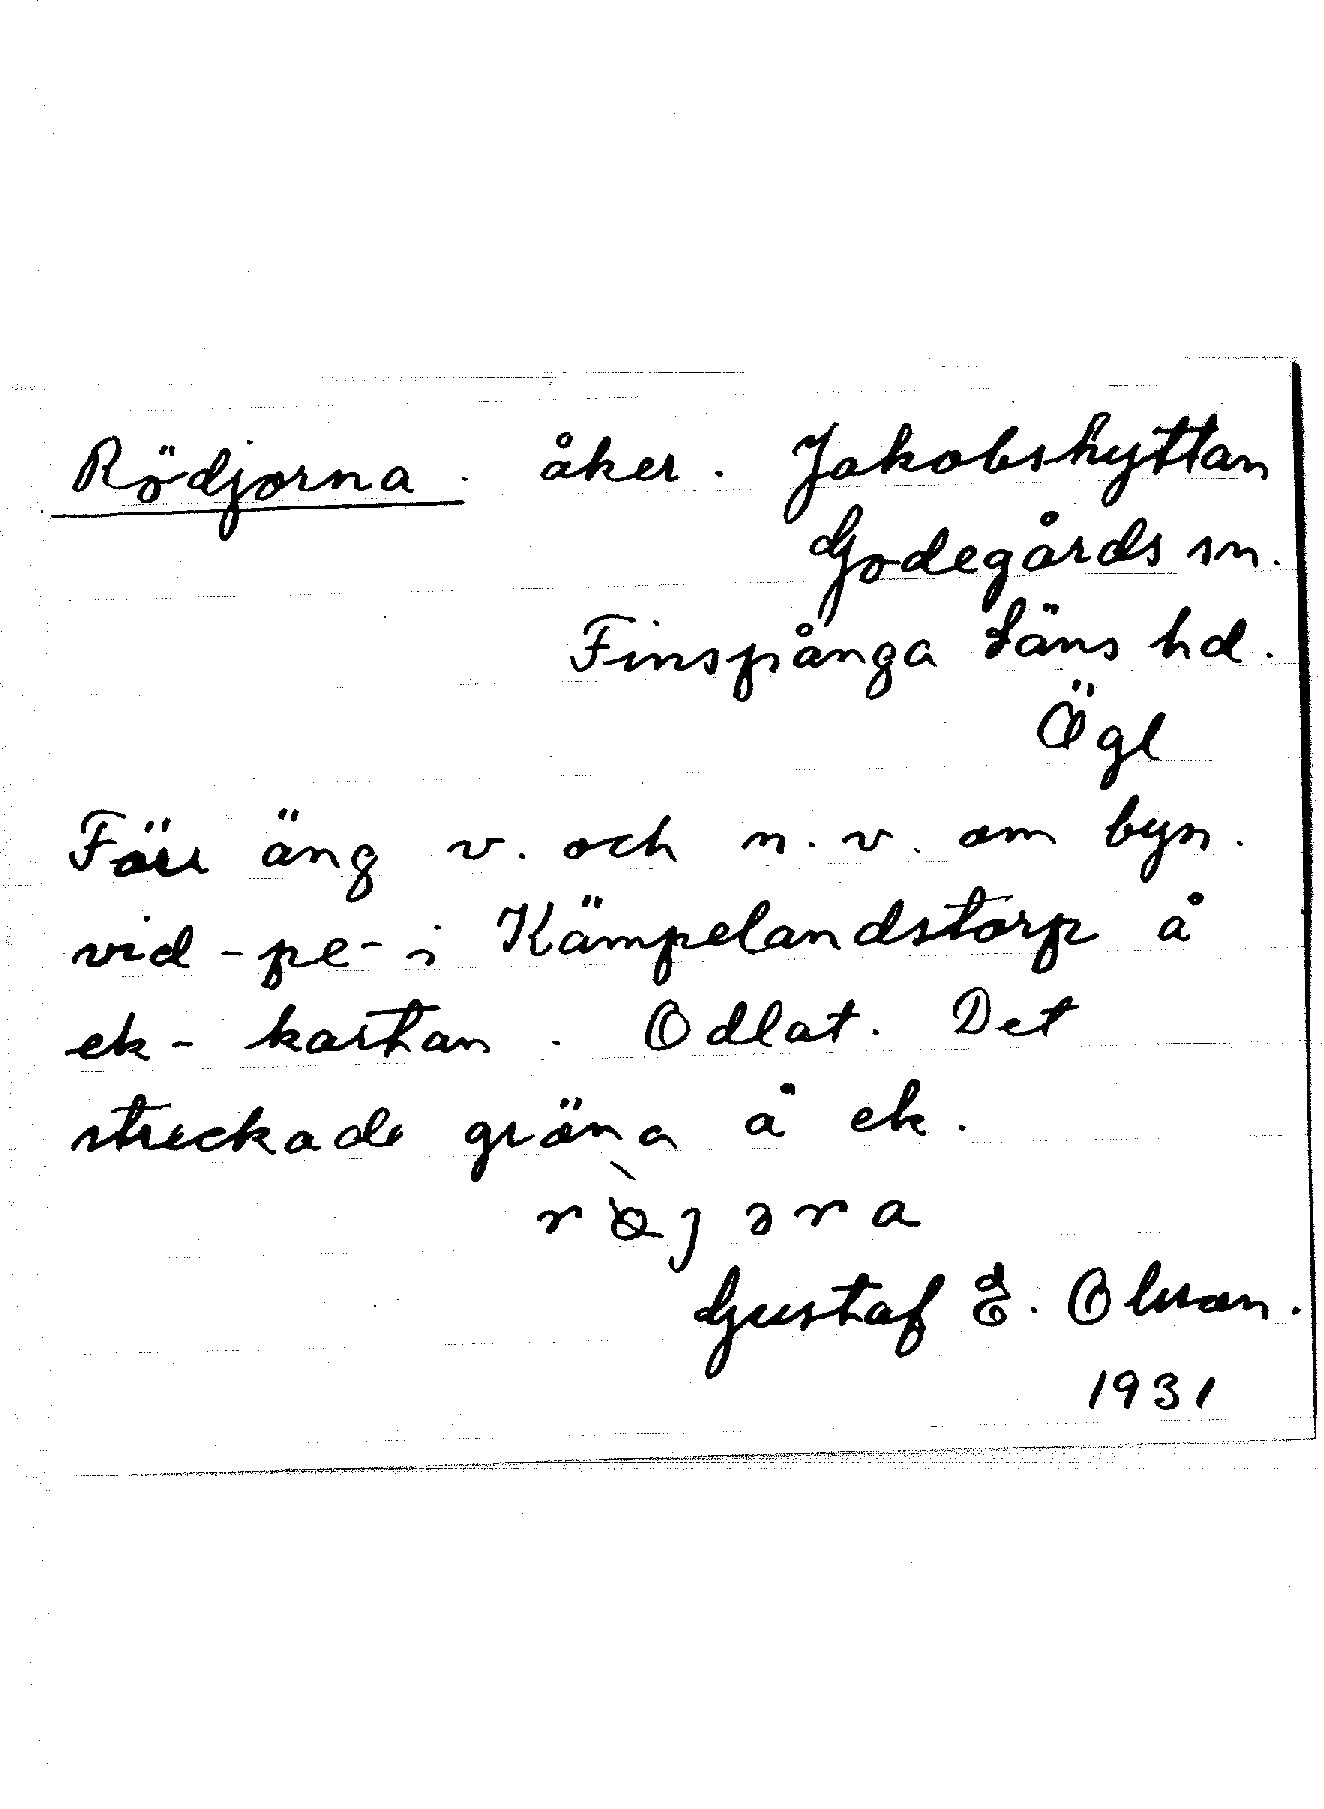 Rödjorna. åker. Jakobshyttan
Godegårds sn.
Finspånga Läns hd.
Ögl
Förr äng v. och n.v. om byn.
vid -pe- i Kämpelandstorp å
ek-kartan. Odlat. Det
streckade gröna å ek.
Gustaf E. Olsson.
1931